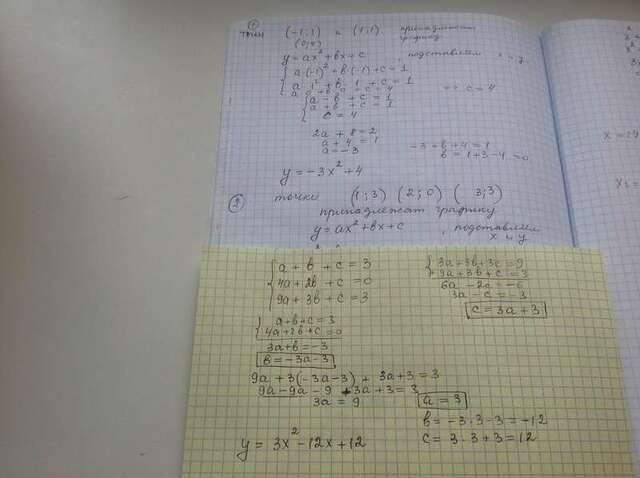 ①
точки (-1;1) и (1;1) принадлежат
(0;4) графику
y = ax² + bx + c подставляем x и y
a·(-1)² + b·(-1) + c = 1
a·1² + b·1 + c = 1
a·0 + b·0 + c = 4 => c = 4
a - b + c = 1
a + b + c = 1
c = 4
2a + 8 = 2
a + 4 = 1
a = -3
-3 + b + 4 = 1
b = 1 + 3 - 4 = 0
y = -3x² + 4
②
точки (1;3) (2;0) (3;3)
принадлежат графику
y = ax² + bx + c, подставляем
x и y
a + b + c = 3
4a + 2b + c = 0
9a + 3b + c = 3
a + b + c = 3
4a + 2b + c = 0
3a + b = -3
b = -3a - 3
3a + 3b + 3c = 9
9a + 3b + c = 3
6a - 2c = -6
3a - c = -3
c = 3a + 3
9a + 3(-3a-3) + 3a + 3 = 3
9a - 9a - 9 + 3a + 3 = 3
3a = 9
a = 3
b = -3·3 - 3 = -12
c = 3·3 + 3 = 12
y = 3x² - 12x + 12